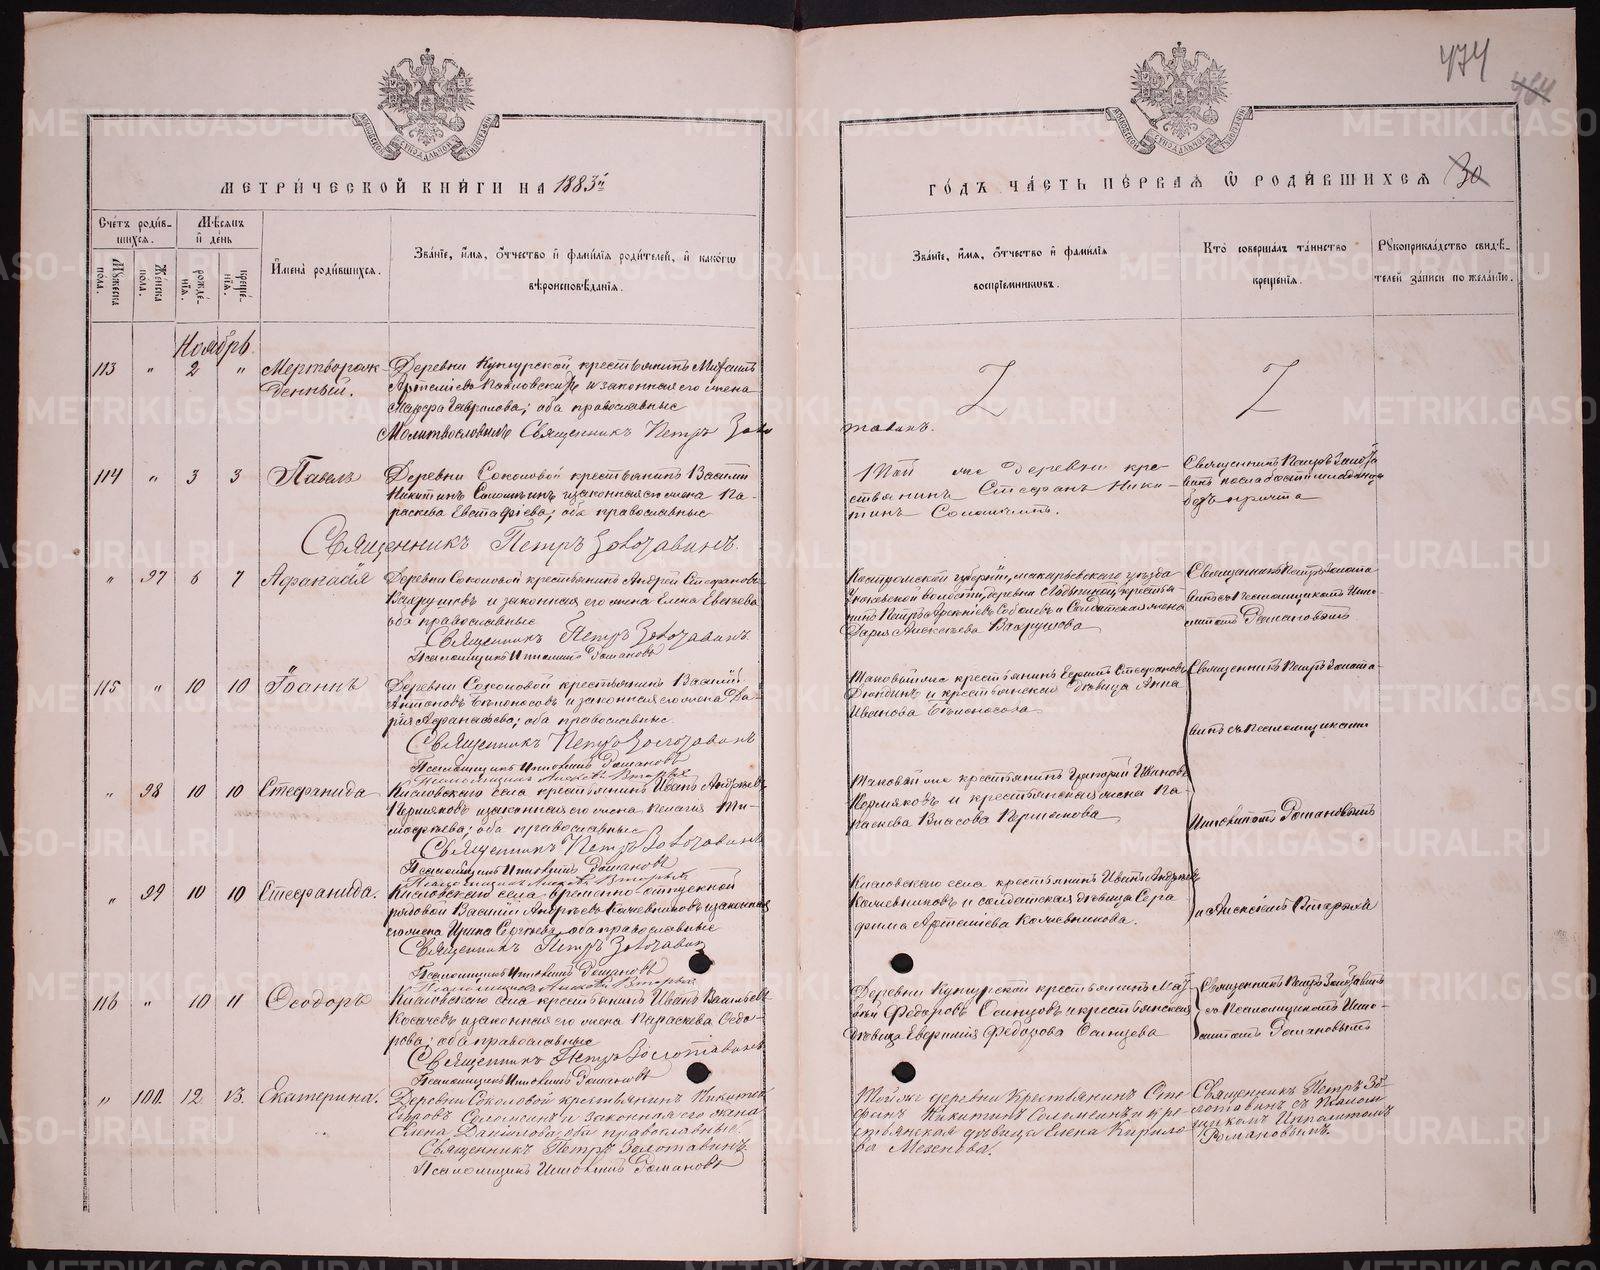 474
484
МЕТРИ́ЧЕСКОЙ КНИ́ГИ НА 1883й
ГО́ДЪ ЧА́СТЬ ПЕ́РВАЯ Ѿ РОДИ́ВШИХСЯ 30
Сче́тъ роди́в-
шихся.
Мужеска пола.
Женска пола.
Мѣсяцъ
и де́нь
рожде́-
нія.
креще́-
нія.
Имена̀ роди́вшихся.
Зва́ніе, и́мя, о́тчество и фами́лія роди́телей, и како́гѡ
вѣроисповѣ́данія.
Зва́ніе, и́мя, о́тчество и фами́лія
воспріе́мниковъ.
Кто̀ соверша́лъ та́инство
креще́нія.
Рукоприкла́дство свидѣ́-
телей за́писи по жела́нію.
Ноябрь.
113 " 2 " Мертворож-
денный.
Деревни Кунгурской крестьянинъ
и законная его жена
Гаврилова; оба православные
Священникъ Петръ Золо
тавинъ.
114 " 3 3 Павелъ
Деревни Соколовой крестьянинъ Василій
Никитинъ и законная его жена Па-
раскева Евстафіева; оба православные
Священникъ Петръ Золотавинъ.
же деревни кре-
стьянинъ Стефанъ Ники-
тинъ
Священникъ Петръ Золота
винъ
безъ причта
" 97 6 7 Афанасія
Деревни Соколовой крестьянинъ Андрей Стефановъ
Вахрушовъ и законная его жена Елена
оба православные
Священникъ Петръ Золотавинъ.
Псаломщикъ Ипполитъ Романовъ
Костромской губерніи, макарьевскаго уѣзда
волости, деревни кресть-
нинъ Петръ Арсеніевъ Соболевъ и Солдатская жена
Дарія Алексѣева Вахрушова
Священникъ Петръ Золота
винъ съ Псаломщикомъ Ипо-
литомъ Романовымъ
115 " 10 10 Іоаннъ
Деревни Соколовой крестьянинъ Василій
Антоновъ Бѣлоносовъ и законная его жена Да-
рія Афанасьева; оба православные.
Священникъ Петръ Золотавинъ
Псаломщикъ Ипполитъ Романовъ
Псаломщикъ Алексѣй Вторыхъ
Таковой же крестьянинъ Стефановъ
и крестьянская дѣвица Анна
Иванова Бѣлоносова
Священникъ Петръ Золота-
винъ съ Псаломщиками
Ипполитомъ Романовымъ
и Алексіемъ Вторыхъ
" 98 10 10 Стефанида
Кисловскаго села крестьянинъ Иванъ Андреевъ
Пермяковъ и законная его жена Пелагія Ти-
мофеева; оба православные
Священникъ Петръ Золотавинъ
Псаломщикъ Ипполитъ Романовъ
Псаломщикъ Алексѣй Вторыхъ
Таковой же крестьянинъ Григорій Ивановъ
Пермяковъ и крестьянская жена Па-
раскева Власова Пермякова
" 99 10 10 Стефанида.
Кисловскаго села временно-отпускной
рядовой Василій Андреевъ Кожевниковъ и законная
его жена Ирина Сергѣева, оба православные
Священникъ Петръ Золотавин
Псаломщикъ Ипполитъ Романовъ
Псаломщикъ Алексѣй Вторыхъ
Кисловскаго села крестьянинъ Иванъ Андреевъ
Кожевниковъ и солдатская дѣвица Сера-
фима Артеміева Кожевникова.
116 " 10 11 Ѳеодоръ
Кисловскаго села крестьянинъ Иванъ Васильевъ
Косачевъ и законная его жена Параскева Ѳедо-
рова; оба православные
Священникъ Петръ Золотавинъ
Псаломщикъ Ипполитъ Романовъ
Деревни Кунгурской крестьянинъ Мат-
вѣй Федоровъ и крестьянская
дѣвица Евгенія Федорова
Священникъ Петръ Золотавинъ
съ Псаломщикомъ Ипо-
литомъ Романовымъ
" 100. 12 13. Екатерина.
Деревни Соколовой крестьянинъ Никита
и законная его жена
Елена Даніилова; оба православные.
Священникъ Петръ Золотавинъ.
Псаломщикъ Ипполитъ Романовъ
Той же деревни Крестьянинъ Сте-
фанъ Никитинъ и кре-
стьянская дѣвица Елена Кирило-
ва
Священникъ Петръ Зо-
лотавинъ съ Псалом-
щикомъ Ипполитомъ
Романовымъ.
METRIKI.GASO-URAL.RU